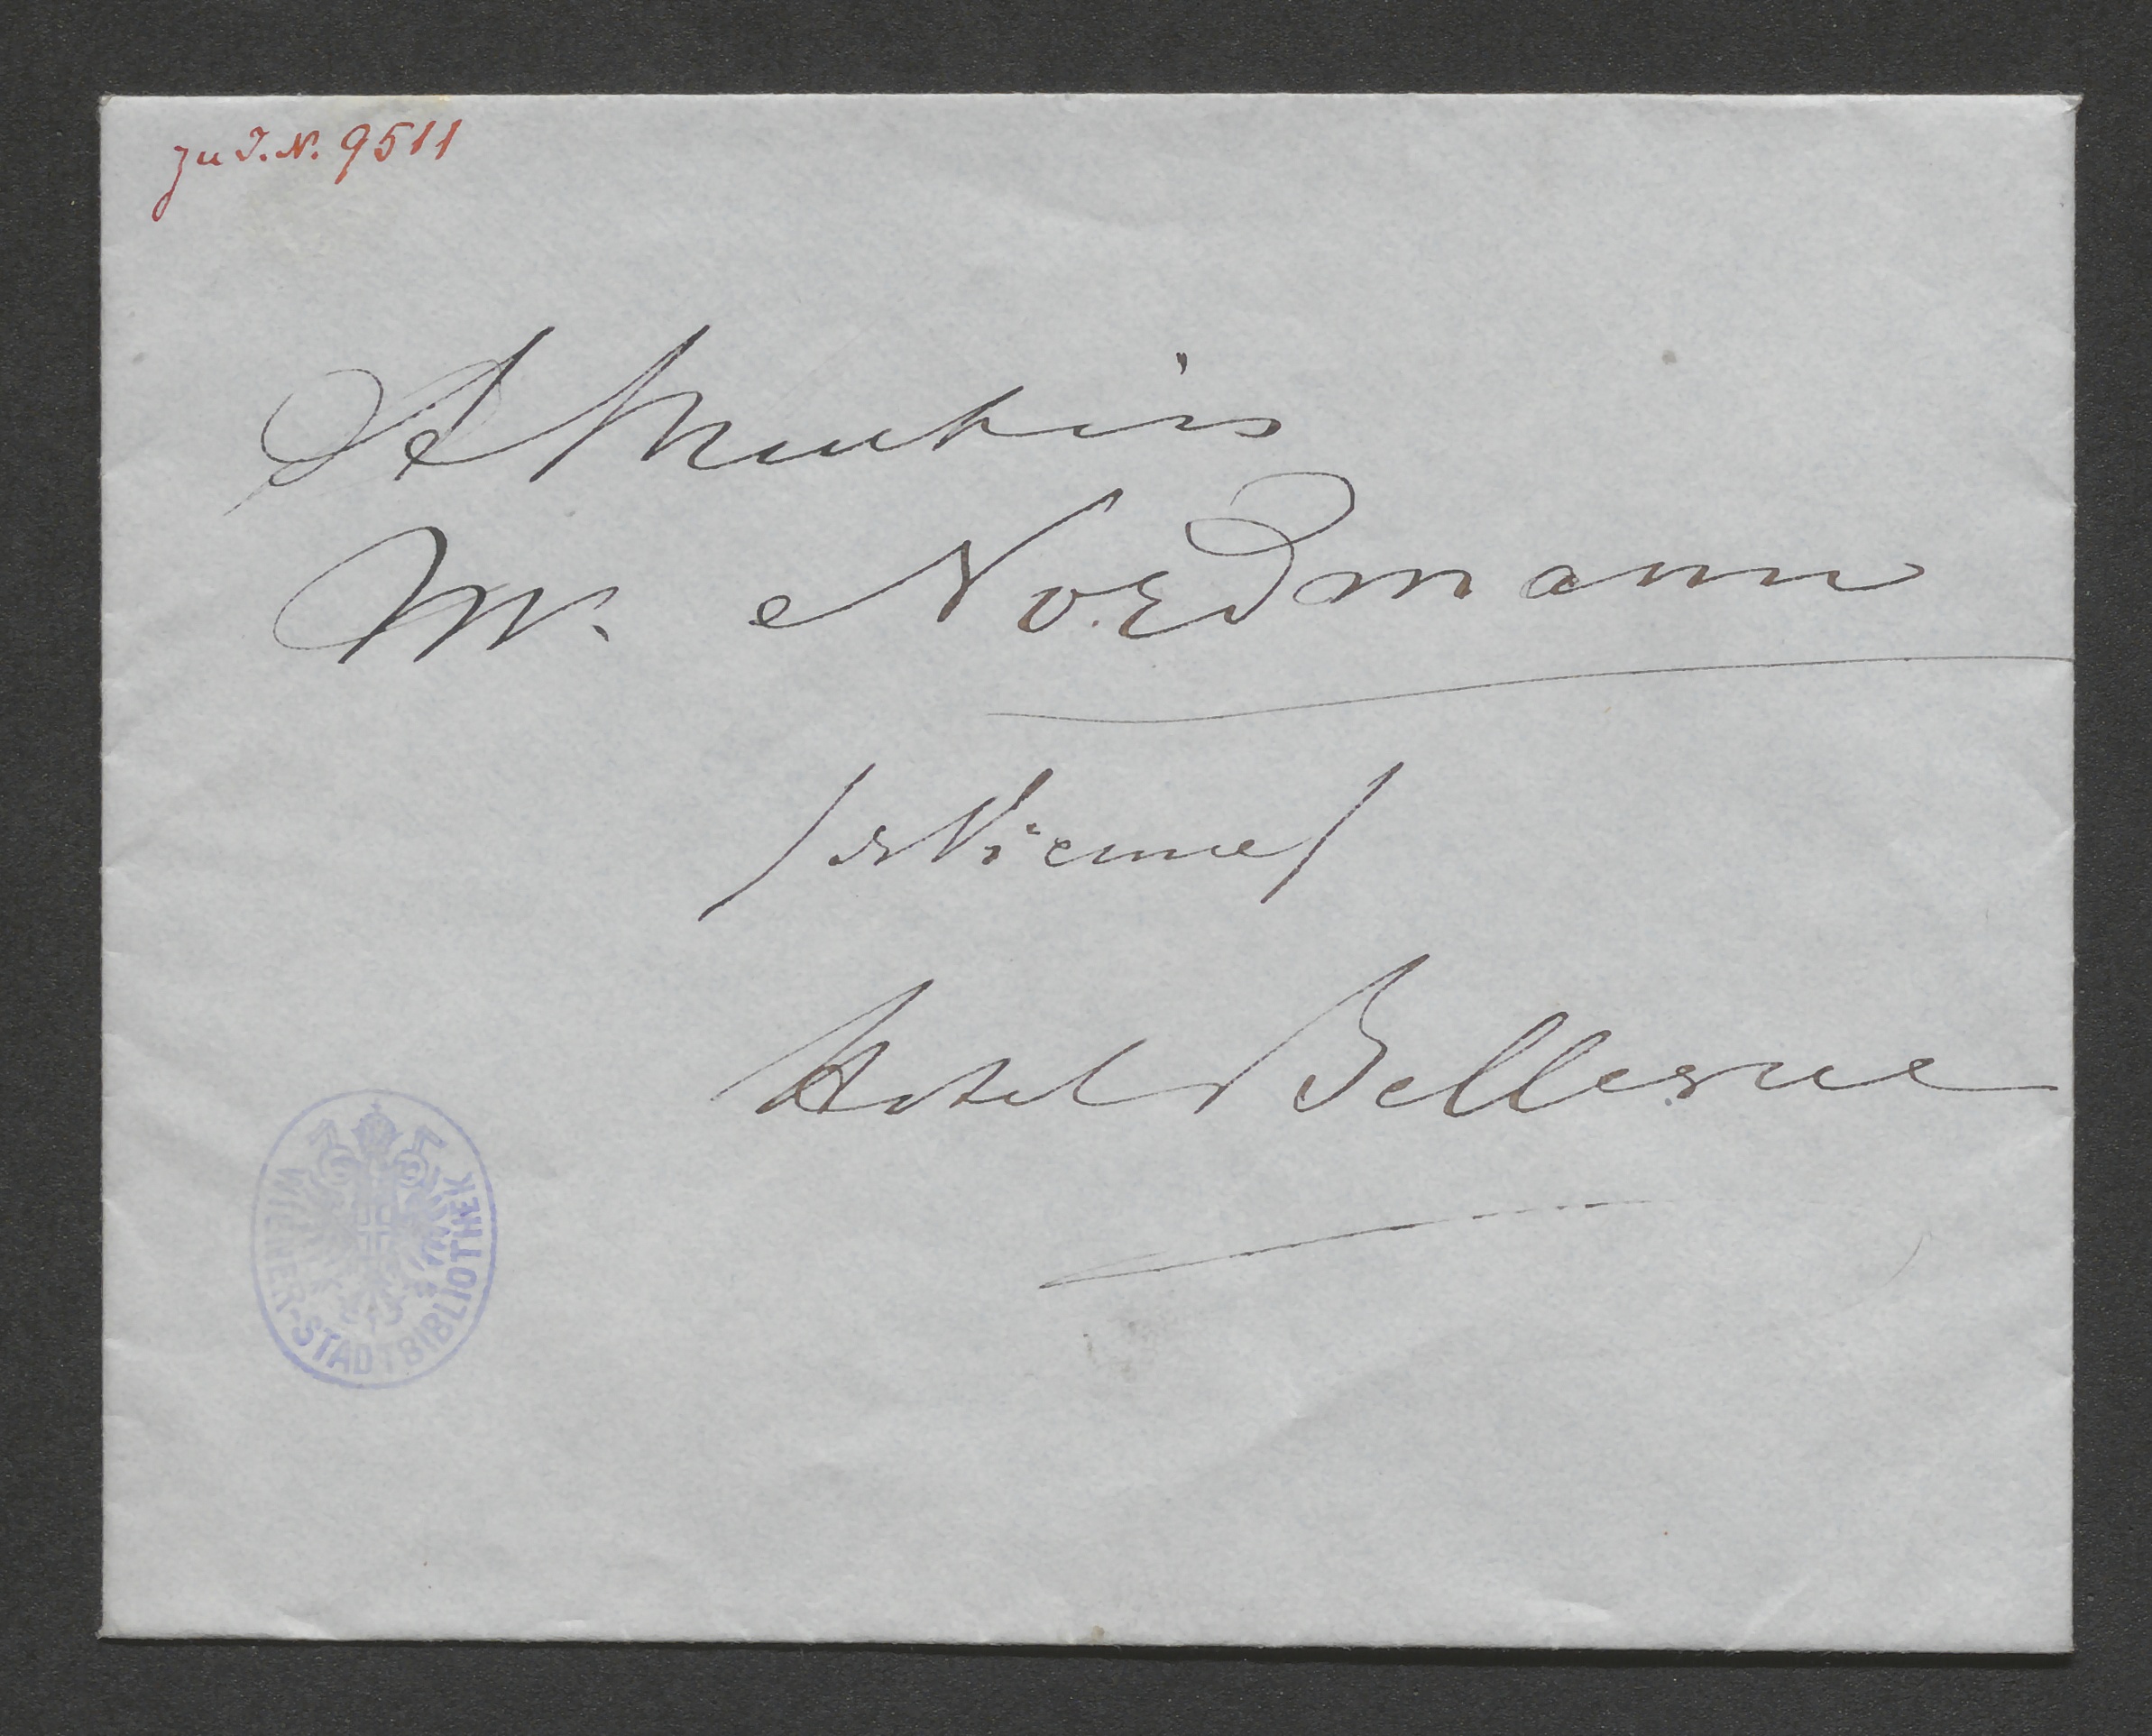 zu I.N. 9511
Mr. Nordmann
/ de Vienne /
Hotel Bellevue
WIENER-STADTBIBLIOTHEK